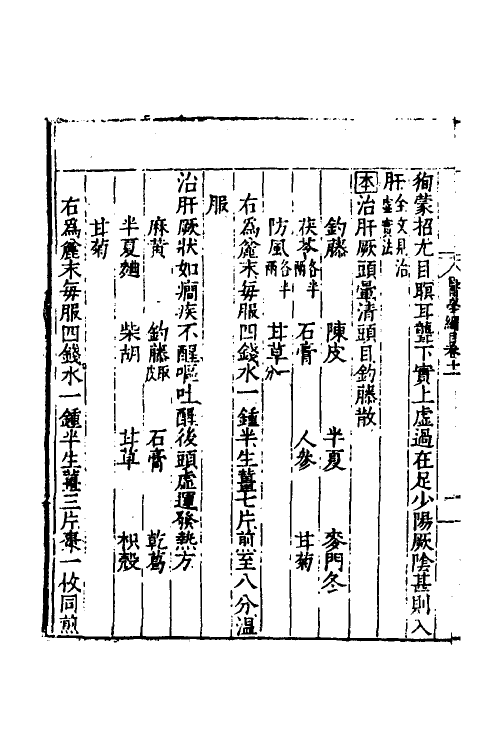 醫學綱目卷十一
徇蒙招尤目瞑耳聾下實上虛過在足少陽厥陰甚則入
肝全文見治虛實法
本治肝厥頭暈清頭目釣藤散
釣藤 陳皮 半夏 麥門冬
茯苓各半兩 石膏 人參 甘菊
防風各半兩 甘草一分
右爲麄末每服四錢水一鍾半生薑七片前至八分溫
服
治肝厥狀如癎疾不醒嘔吐醒後頭虛運發熱方
麻黃 釣藤皮 石膏 乾葛
半夏麯 柴胡 甘草 枳殼
甘菊
右爲麄末每服四錢水一鍾半生薑三片棗一枚同煎